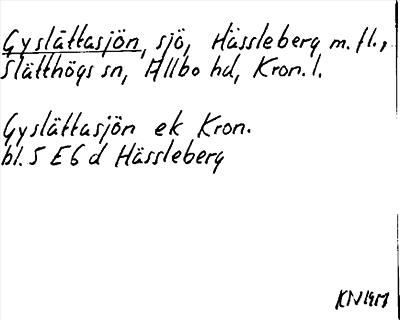 Gyslättasjön, sjö, Hässleberg m.fl.,
Slätthögs sn, Allbo hd, Kron. l.
Gyslättasjön ek Kron.
bl. 5 E 6 d Hässleberg